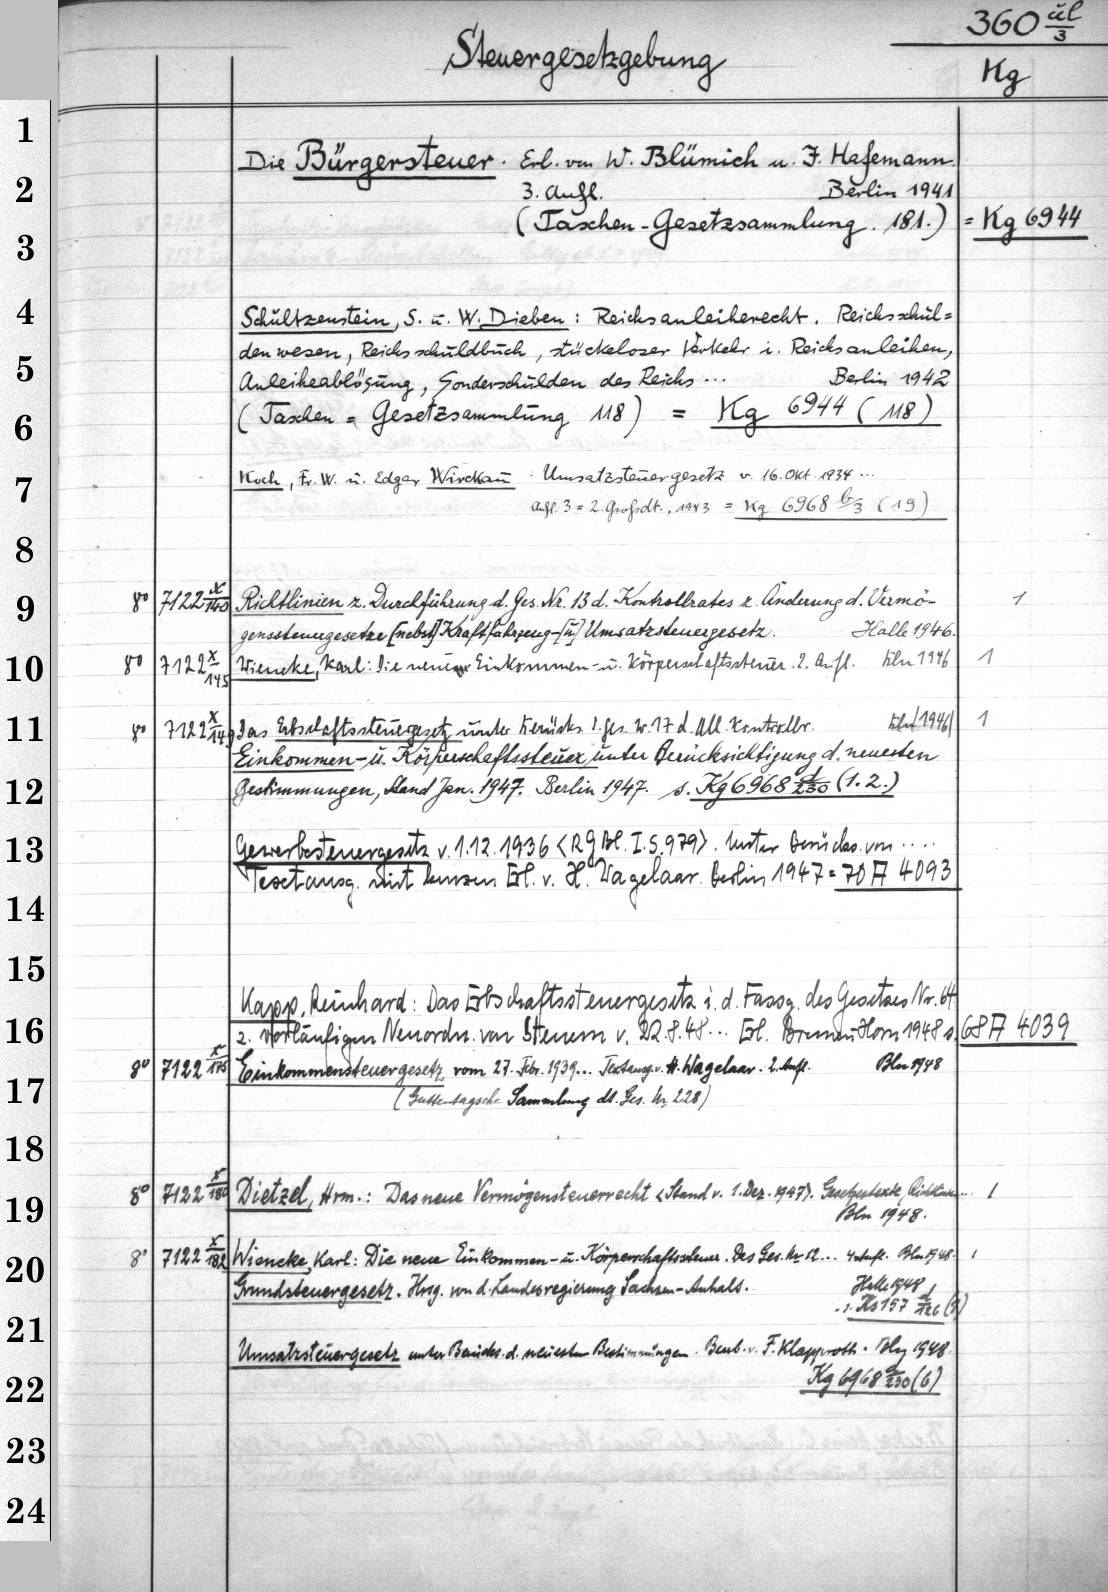 360 ül/3
Steuergesetzgebung
Kg
1
Die Bürgersteuer. Erl. von W. Blümich u. F. Hafemann.
2
3. Aufl. Berlin 1941
(Taschen-Gesetzsammlung. 181.) = Kg 6944
3
4
Schultzenstein, S. u. W. Dieben: Reichsanleiherecht. Reichsschul=
denwesen, Reichsschuldbuch, stückeloser Verkehr i. Reichsanleihen,
5
Anleiheablösung, Sonderschulden des Reichs ... Berlin 1942
(Taschen = Gesetzsammlung 118) = Kg 6944 (118)
6
Koch, Fr. W. u. Edgar Wirckau Umsatzsteuergesetz v. 16. Okt. 1934 ...
7
Aufl. 3 = 2. Großdt., 1943 = Kg 6968 b/3 (19)
8
8° 7122 x/140 Richtlinien z. Durchführung d. Ges. Nr. 13 d. Kontrollrates z. Änderung d. Vermö- 1
9
genssteuergesetze [nebst] Kraftfahrzeug-[u] Umsatzsteuergesetz. Halle 1946.
10
8° 7122 x/145 Wiencke, Karl: Die neue Einkommen- u. Körperschaftssteuer. 2. Aufl. Bln 1946 1
11
8° 7122 x/149 Das Erbschaftssteuergesetz unter Berücks. d. Ges. Nr. 17 d. All. Kontrollr. Bln [1946] 1
Einkommen- u. Körperschaftssteuer unter Berücksichtigung d. neuesten
12
Bestimmungen, Stand Jan. 1947. Berlin 1947. s. Kg 6968 d/230 (1.2.)
13
Gewerbesteuergesetz v. 1.12.1936 <RGBl. I. S. 979>. Unter Berücks. von ....
Textausg. mit kurzen Erl. v. H. Wagelaar. Berlin 1947 = 70 A 4093
14
15
Kapp, Reinhard: Das Erbschaftssteuergesetz i. d. Fassg. des Gesetzes Nr. 64
16
z. vorläufigen Neuordn. von Steuern v. 22.8.48 ... Erl. Bremen-Horn 1948 s. 68 A 4039
8° 7122 x/175 Einkommensteuergesetz vom 27. Febr. 1939... Textausg. v. H. Wagelaar. 2. Aufl. Bln 1948
17
(Guttentagsche Sammlung dt. Ges. Nr. 228)
18
8° 7122 x/180 Dietzel, Hrm.: Das neue Vermögensteuerrecht <Stand v. 1. Dez. 1947>. Gesetzestexte, ... 1
19
Bln 1948.
20
8° 7122 x/182 Wiencke, Karl: Die neue Einkommen- u. Körperschaftssteuer. Das Ges. Nr. 12... 4. Aufl. Bln 1948. 1
Grundsteuergesetz. Hrsg. von d. Landesregierung Sachsen-Anhalt. Halle 1948
21
Umsatzsteuergesetz unter Berücks. d. neuesten Bestimmungen. Bearb. v. F. Klapproth. 1948.
22
Kg 6968 d/230 (6)
23
24